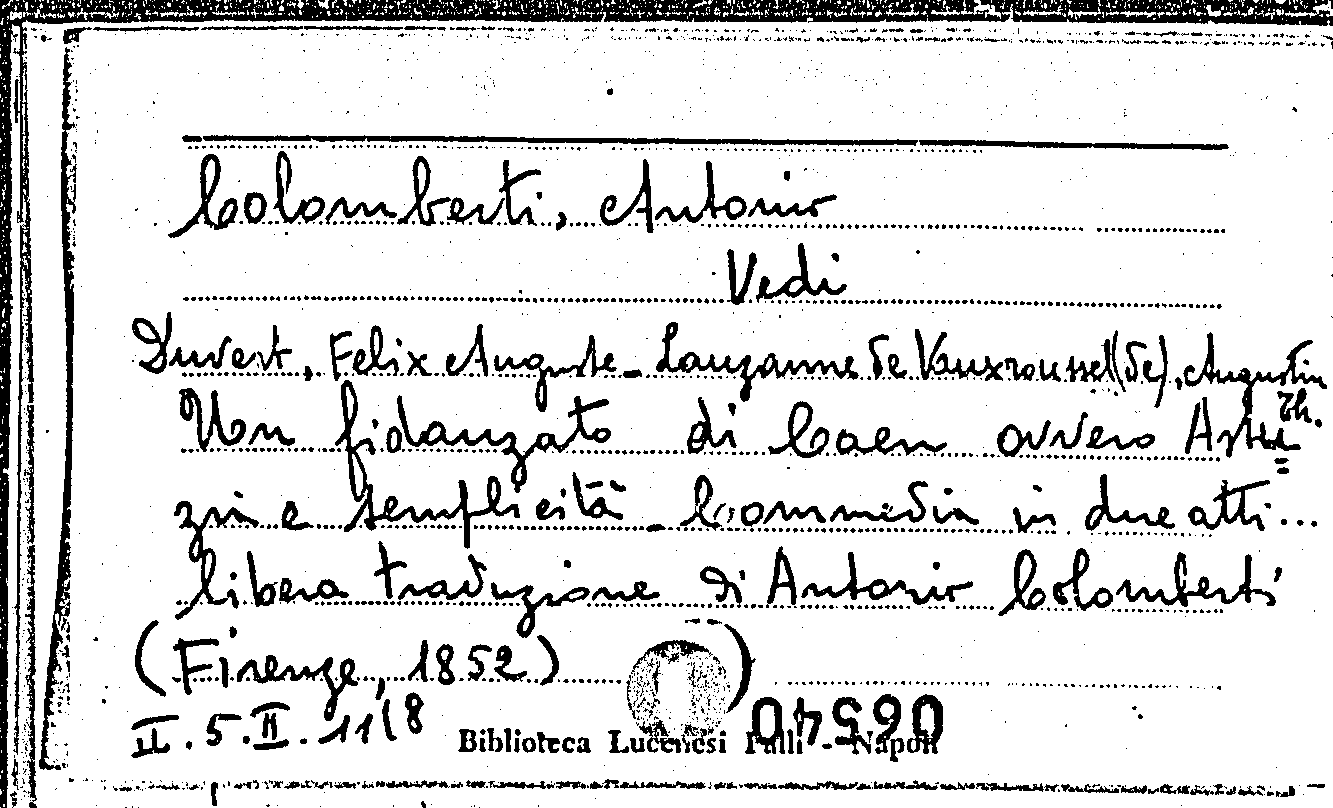 Colomberti, Antonio
Vedi
Duvert, Felix Auguste - Lauzanne de Vauxroussel (de), Augustin Th.
Un fidanzato di Caen ovvero Astu=
zia e semplicità - Commedia in due atti...
libera traduzione di Antonio Colomberti
(Firenze, 1852)
II.5.II.11(8
06540
Biblioteca Lucchesi Palli - Napoli